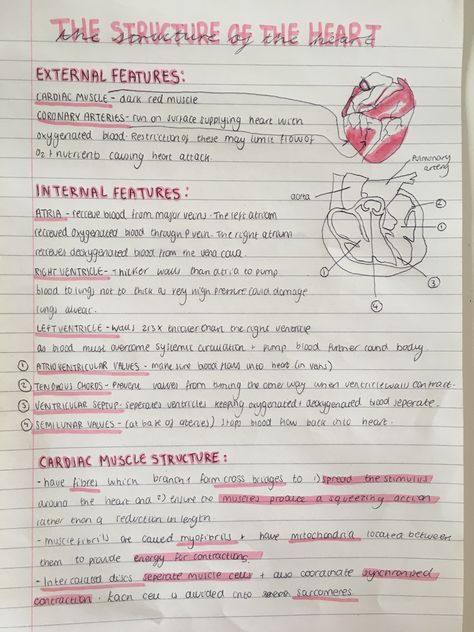 THE STRUCTURE OF THE HEART
the structure of the heart
EXTERNAL FEATURES:
CARDIAC MUSCLE - dark red muscle
CORONARY ARTERIES - run on surface supplying heart with
oxygenated blood. Restriction of these may limit flow of
O2 + nutrients causing heart attack.
Pulmonary
artery
aorta
INTERNAL FEATURES:
ATRIA - recieve blood from major veins. The left atrium
recieved oxygenated blood through P vein. The right atrium
recieves deoxygenated blood from the vena cava.
RIGHT VENTRICLE - thicker walls than atria to pump
blood to lungs not to thick a very high pressure could damage
lungs alveoli.
LEFT VENTRICLE - walls 2/3x thicker than the right ventricle
as blood must overcome systemic circulation + pump blood further round body.
① ATRIOVENTRICULAR VALVES - make sure blood flows into heart (in vans)
② TENDINOUS CHORDS - Prevent valves from turning the other way when ventricle walls contract.
③ VENTRICULAR SEPTUP - seperates ventricles keeping oxygenated + deoxygenated blood seperate.
④ SEMILUNAR VALVES - (at base of arteries) stops blood flow back into heart.
② ① ① ③ ④
CARDIAC MUSCLE STRUCTURE:
- have fibres which branch + form cross bridges to 1) spread the stimulus
around the heart and 2) ensure the muscles produce a squeezing action
rather than a reduction in length.
- muscle fibrils are called myofibrils + have mitochondria located between
them to provide energy for contractions.
- Intercalated discs seperate muscle cells + also coordinate synchronised
contraction. Each cell is divided into sarcomeres